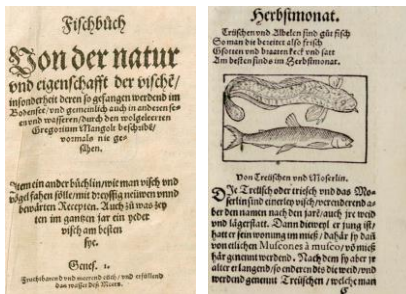 Fischbůch
Von der natur
vnd eigenschafft der vischē/
insonderheit deren so gefangen werdend im
Bodensee/vnd gemeinlich auch in anderen se=
en vnd wasseren/durch den wolgeleerten
Gregorium Mangolt beschribē/
vormals nie ge=
sähen.
Item ein ander büchlin/wie man visch vnd
vögel fahen sölle/mit dreyssig nüwen vnnd
bewärten Recepten. Auch zů was zey
ten im gantzen jar ein yeder
visch am besten
sye.
Genes. 1.
Fruchtbarend vnd merend üch/ vnd erfüllend
das wasser deß Meers.
Herbstmonat.
Trüschen vnd Albelen sind gůt fisch
So man die bereitet also frisch
Gsotten vnd braaten keck vnd satt
Am besten sinds im Herbstmonat.
Von Treüschen vnd Moserlin.
DJe Treüsch oder triesch vnd das Mo=
serlin sind einerley visch/verenderend a=
ber den namen nach den jarē/auch jre weid
vnd lägerstatt. Dann dieweyl er jung ist/
hatt er sein wonung im mieß/dahär jn dañ
von etlichen Muscones à musco/vō mieß
här genennt werdend. Nach dem sy aber je
älter er langend/so enderen dts die weid/vnd
werdend genennt Treüschen/welche man